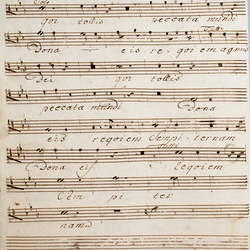 Solo
qui tollis peccata mundi
Tutti
Dona eis reqiem agnus
Dei qui tollis
peccata mundi Dona
eis requiem Sempiternam
Dona ei requiem
Sem pi ter
nam